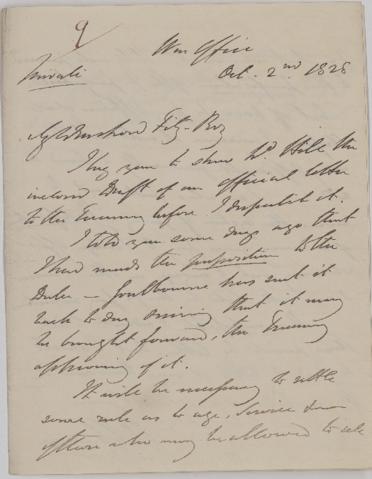 9
War Office
Private
Oct. 2nd. 1828
My Dear Lord Fitz-Roy
I beg you to show Ld Hill the
inclosed Draft of an official letter
to the Treasury before I dispatch it.
I told you some days ago that
I had made the proposition to the
Duke — Goulbourne has sent it
back to day desiring that it may
be brought forward, the Treasury
approving of it.
It will be necessary to settle
some rule as to age, service
officers who may be allowed to sell